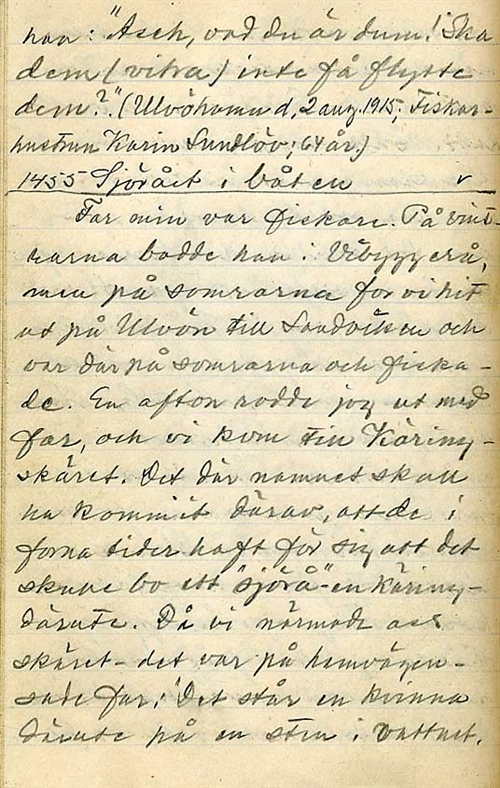 han: "Asch, vad du är dum! Ska
dem (vitra) inte få flytte
dem?". (Ulvöhamn d, 2 aug. 1915; Fiskar-
hustrun Karin Sundlöv; 64 år.)
1455 Sjörået i båten v
Far min var fiskare. På vint-
rarna bodde han i Vibyggerå,
men på somrarna for vi hit
ut på Ulvön till Sandviken och
var där på somrarna och fiska-
de. En afton rodde jag ut med
far, och vi kom till Käring-
skäret. Det där namnet skall
ha kommit därav, att de i
forna tider haft för sig att det
skulle bo ett "sjörå" - en käring -
därute. Då vi närmade oss
skäret - det var på hemvägen -
sade far: "Det står en kvinna
därute på en sten i vattnet.